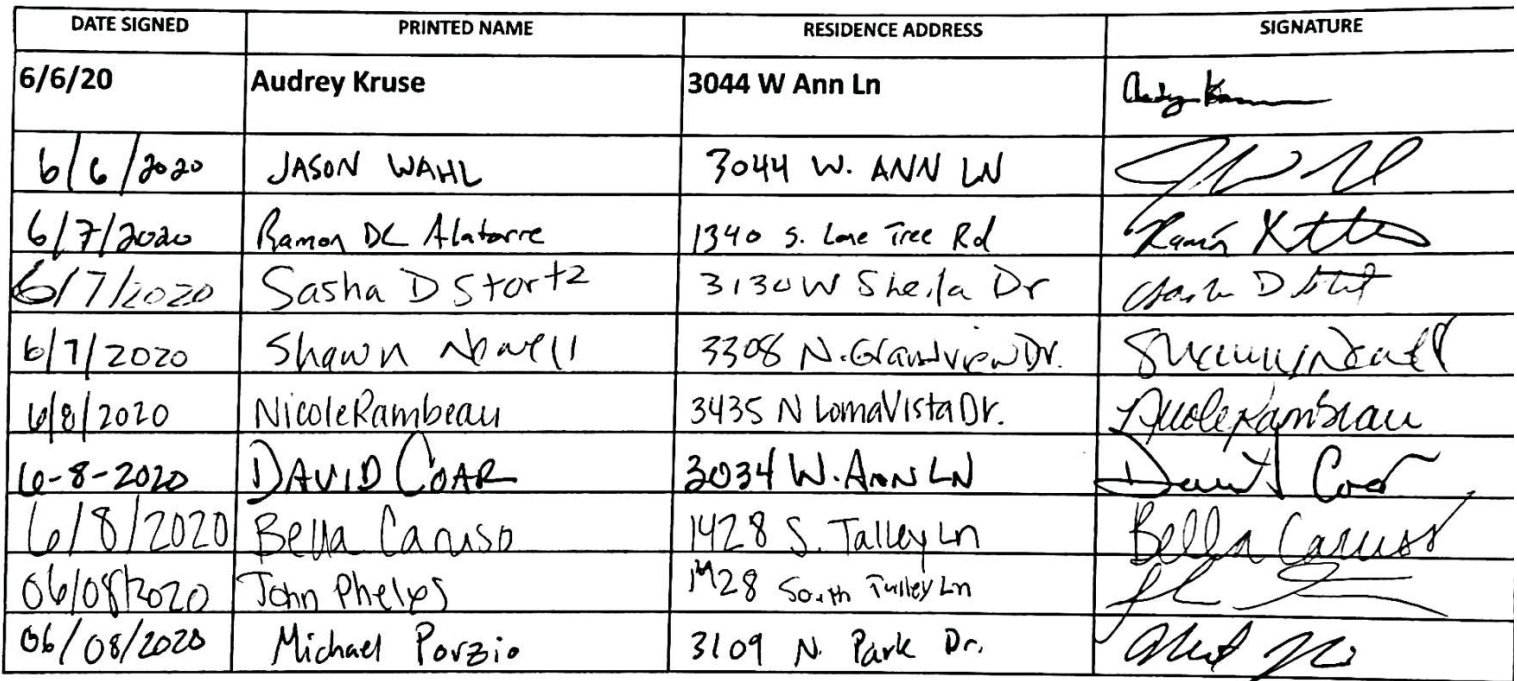 DATE SIGNED PRINTED NAME RESIDENCE ADDRESS SIGNATURE
6/6/20 Audrey Kruse 3044 W Ann Ln
6/6/2020 JASON WAHL 3044 W. ANN LN
6/7/2020 Ramon DC Alatorre 1340 S. Lone Tree Rd
6/7/2020 Sasha D Stortz 3130 W Sheila Dr
6/7/2020 Shawn Newell 3308 N. Grandview Dr.
6/8/2020 Nicole Rambeau 3435 N Loma Vista Dr. Nicole Rambeau
6-8-2020 DAVID COAR 3034 W. ANN LN David Coar
6/8/2020 Bella Caruso 1428 S. Talley Ln Bella Caruso
06/08/2020 John Phelps 1428 South Talley Ln
06/08/2020 Michael Porzio 3109 N. Park Dr.